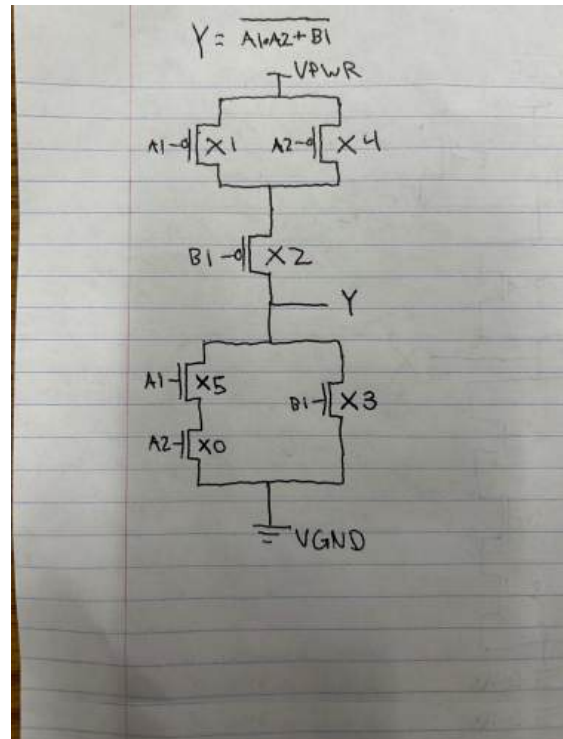 Y = A1•A2+B1
VPWR
A1 X1 A2 X4
B1 X2
Y
A1 X5
B1 X3
A2 X0
VGND